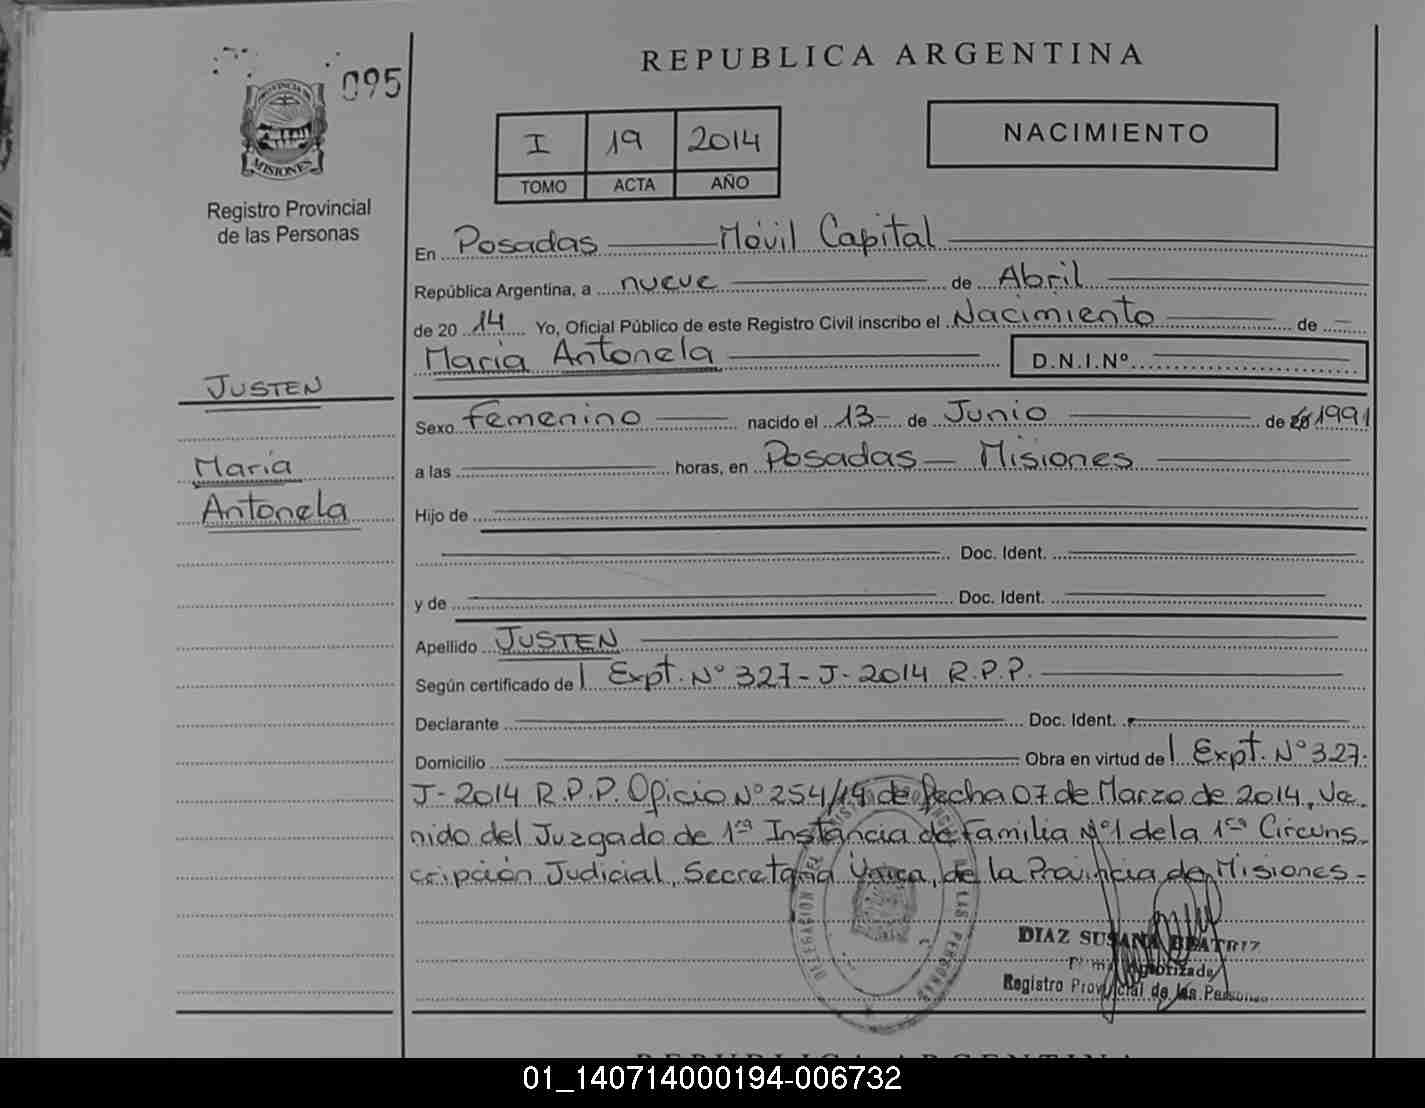 095
PROVINCIA DE
MISIONES
Registro Provincial
de las Personas
JUSTEN
Maria
Antonela
REPUBLICA ARGENTINA
I 19 2014
TOMO ACTA AÑO
NACIMIENTO
En Posadas Móvil Capital
República Argentina, a nueve de Abril
de 20 14 Yo, Oficial Público de este Registro Civil inscribo el Nacimiento de
Maria Antonela D.N.I.Nº
Sexo Femenino nacido el 13 de Junio de 1991
a las horas, en Posadas - Misiones
Hijo de
Doc. Ident.
y de Doc. Ident.
Apellido JUSTEN
Según certificado de Expt. Nº 327-J-2014 R.P.P.
Declarante Doc. Ident.
Domicilio Obra en virtud de Expt. Nº 327-
J-2014 R.P.P. Oficio Nº 254/14 de fecha 07 de Marzo de 2014, Ve
nido del Juzgado de 1ra Instancia de Familia Nº1 de la 1ra Circuns
cripción Judicial, Secretaria Única, de la Provincia de Misiones-
DELEGACION DEL DE LAS PERSONAS
DIAZ SUSANA BEATRIZ
Firma Autorizada
Registro Provincial de las Personas
REPUBLICA ARGENTINA
01_140714000194-006732